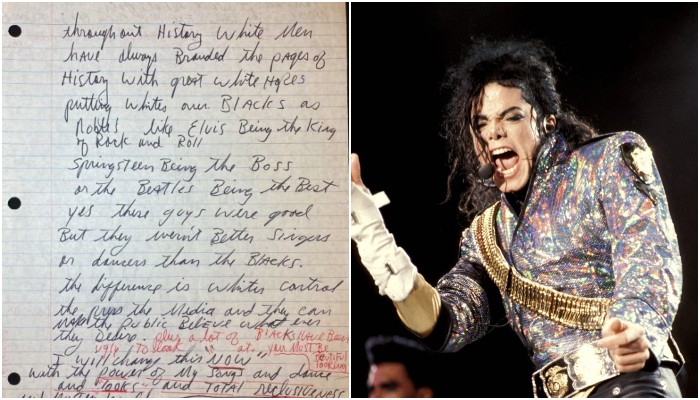 throughout History White Men
have always Branded the pages of
History with great white Hopes
putting whites over BLACKS as
Nobles like Elvis Being the King
of Rock and Roll
Springsteen Being the Boss
or the Beatles Being the Best
yes there guys were good
But they weren't Better singers
or dancers than the BLACKS.
the difference is whites control
the press the Media and they can
make the public Believe whatever
they Desire. plus a lot of BLACKS HAVE Been
ugly to look at. you Must Be
beautiful
looking
I will change this NOW"
with the power of My songs and dance
and "looks" and TOTAL reclusiveness